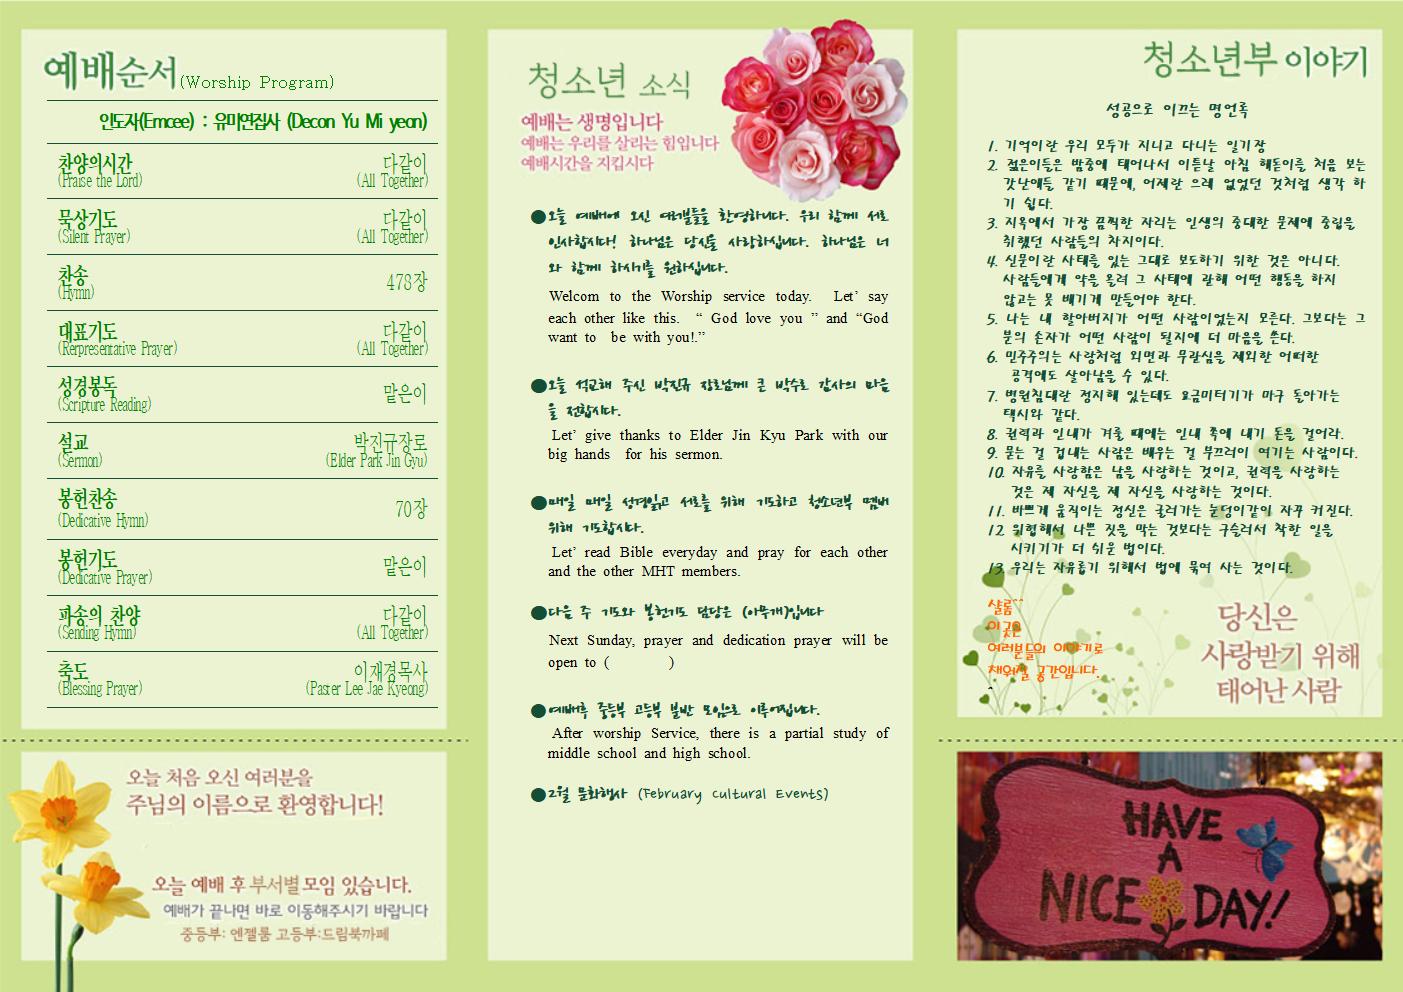 예배순서(Worship Program)
인도자(Emcee) : 유미연집사 (Decon Yu Mi yeon)
찬양의시간 다같이
(Praise the Lord) (All Together)
묵상기도 다같이
(Silent Prayer) (All Together)
찬송 478장
(Hymn)
대표기도 다같이
(Rerpresentative Prayer) (All Together)
성경봉독 맡은이
(Scripture Reading)
설교 박진규장로
(Sermon) (Elder Park Jin Gyu)
봉헌찬송 70장
(Dedicative Hymn)
봉헌기도 맡은이
(Dedicative Prayer)
파송의 찬양 다같이
(Sending Hymn) (All Together)
축도 이재경목사
(Blessing Prayer) (Paster Lee Jae Kyeong)
오늘 처음 오신 여러분을
주님의 이름으로 환영합니다!
오늘 예배 후 부서별 모임 있습니다.
예배가 끝나면 바로 이동해주시기 바랍니다
중등부: 엔젤룸 고등부:드림북까페
청소년 소식
예배는 생명입니다
예배는 우리를 살리는 힘입니다
예배시간을 지킵시다
●오늘 예배에 오신 여러분들을 환영하니다. 우리 함께 서로
인사합시다! 하나님은 당신을 사랑하십니다. 하나님은 너
와 함께 하시기를 원하십니다.
Welcom to the Worship service today. Let’ say
each other like this. “ God love you ” and “God
want to be with you!.”
●오늘 설교해 주신 박진규 장로님께 큰 박수로 감사의 마음
을 전합시다.
Let’ give thanks to Elder Jin Kyu Park with our
big hands for his sermon.
●매일 매일 성경읽고 서로를 위해 기도하고 청소년부 멤버
위해 기도합시다.
Let’ read Bible everyday and pray for each other
and the other MHT members.
●다음 주 기도와 봉헌기도 담당은 (아무개)입니다
Next Sunday, prayer and dedication prayer will be
open to ( )
●예배후 중등부 고등부 분반 모임으로 이루어집니다.
After worship Service, there is a partial study of
middle school and high school.
●2월 문화행사 (February Cultural Events)
청소년부 이야기
성공으로 이끄는 명언록
1. 기억이란 우리 모두가 지니고 다니는 일기장
2. 젊은이들은 밤중에 태어나서 이튿날 아침 해돋이를 처음 보는
갓난애들 같기 때문에, 어제란 으레 없었던 것처럼 생각 하
기 쉽다.
3. 지옥에서 가장 끔찍한 자리는 인생의 중대한 문제에 중립을
취했던 사람들의 차지이다.
4. 신문이란 사태를 있는 그대로 보도하기 위한 것은 아니다.
사람들에게 약을 올려 그 사태에 관해 어떤 행동을 하지
않고는 못 배기게 만들어야 한다.
5. 나는 내 할아버지가 어떤 사람이었는지 모른다. 그보다는 그
분의 손자가 어떤 사람이 될지에 더 마음을 쓴다.
6. 민주주의는 사랑처럼 외면과 무관심을 제외한 어떠한
공격에도 살아남을 수 있다.
7. 병원침대란 정지해 있는데도 요금미터기가 마구 돌아가는
택시와 같다.
8. 권력과 인내가 겨룰 때에는 인내 쪽에 내기 돈을 걸어라.
9. 묻는 걸 겁내는 사람은 배우는 걸 부끄러이 여기는 사람이다.
10. 자유를 사랑함은 남을 사랑하는 것이고, 권력을 사랑하는
것은 제 자신을 제 자신을 사랑하는 것이다.
11. 바쁘게 움직이는 정신은 굴러가는 눈덩이같이 자꾸 커진다.
12. 위협해서 나쁜 짓을 막는 것보다는 구슬러서 착한 일을
시키기가 더 쉬운 법이다.
13. 우리는 자유롭기 위해서 법에 묶여 사는 것이다.
샬롬^^
이곳은
여러분들의 이야기로
채워질 공간입니다.
당신은
사랑받기 위해
태어난 사람
HAVE
A
NICE DAY!